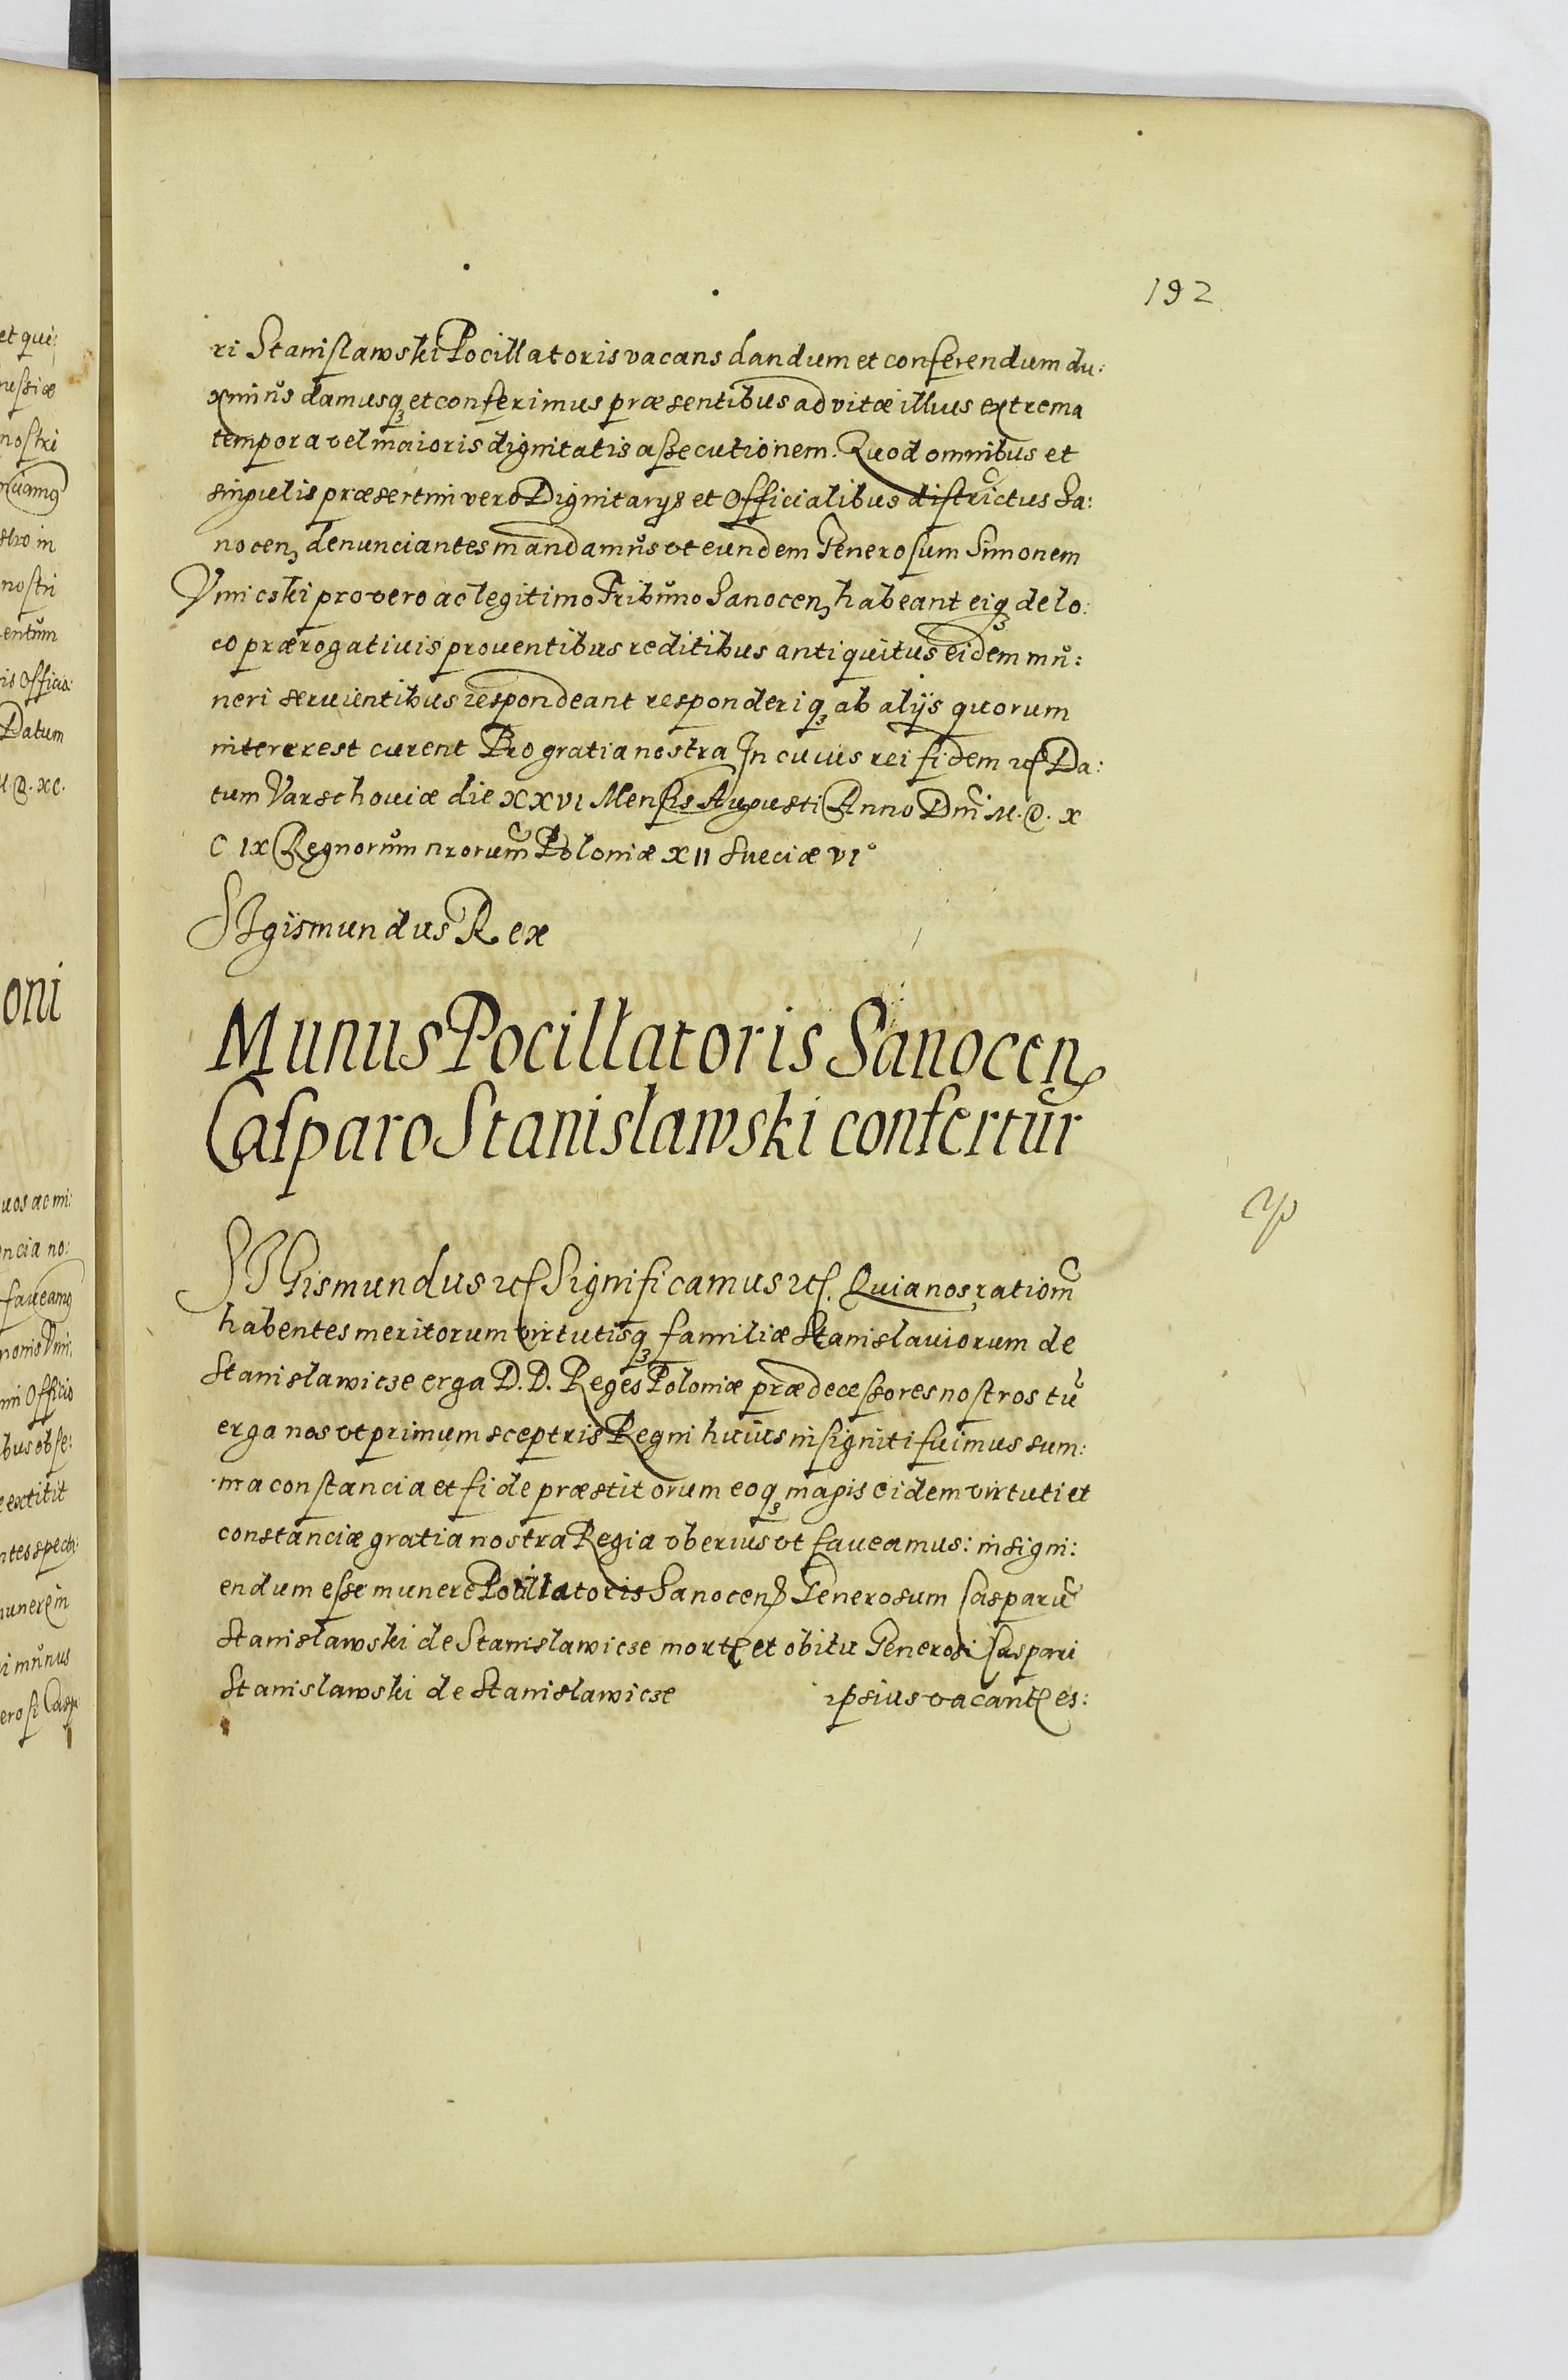 192
ri Stanislawski Pocillatoris vacans dandum et conferendum du:
ximus damusq₃ et conferimus præsentibus ad vitæ illius extrema
tempora vel maioris dignitatis assecutionem. Quod omnibus et
singulis præsertim vero Dignitarijs et Officialibus districtus Sa:
nocen₃ denunciantes mandamus vt eundem Generosum Simonem
Vmicski pro vero ac legitimo Tribuno Sanocen₃ habeant eiq₃ de lo:
co prærogativis proventibus reditibus antiquitus eidem mu:
neri servientibus respondeant responderiq₃ ab alijs quorum
intererest curent Pro gratia nostra In cuius rei fidem etc Da:
tum Varschoviæ die XXVI Mensis Augusti Anno Dni M. D. X
C IX Regnorum nrorum Poloniæ XII Sueciæ VI°
Sigismundus Rex
Munus Pocillatoris Sanocen₃
Casparo Stanislawski confertur
SIGismundus etc Significamus etc. Quia nos ration̄
habentes meritorum virtutisq₃ familiæ Stanislaviorum de
Stanislawicze erga D. D. Reges Poloniæ prædecessores nostros tū
erga nos vt primum sceptris Regni huius insigniti fuimus sum:
ma constancia et fide præstitorum eoq₃ magis eidem virtuti et
constanciæ gratia nostra Regia vberius vt faveamus: insigni:
endum esse munere Pocillatoris Sanocen₃ Generosum Casparū
Stanislawski de Stanislawicze morte et obitu Generosi Caspari
Stanislawski de Stanislawicze ipsius vacante es:
et qui:
nostri
stro in
nostri
entum
ris Officio:
Datum
M. D. XC.
oni
uos ac mi:
ncia no:
faveamꝰ
nonis Vmi:
mi Officio
ibus obse:
extitit
ntes spect:
munere in
i munus
erosi Casp: